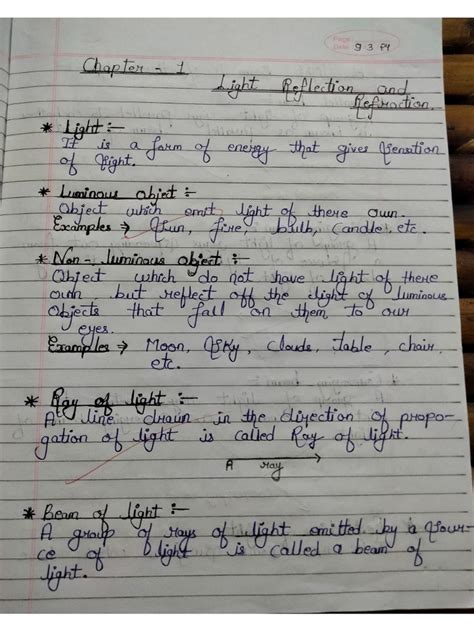 Page:
Date: 9 3
Chapter - 1
Light Reflection and
Refraction.
* Light :-
It is a form of energy that gives Sensation
of Sight.
* Luminous object :-
Object which emit light of there own.
Examples → Sun, fire, bulb, Candle, etc.
* Non - luminous object :-
Object which do not have light of there
own but reflect off the light of luminous
Objects that fall on them to our
eyes.
Examples → Moon, Sky, Clouds, Table, chair,
etc.
* Ray of light :-
A line drawn in the direction of propo-
gation of light is called Ray of light.
A ray
* Beam of light :-
A group of rays of light emitted by a Sour-
ce of light is called a beam of
light.